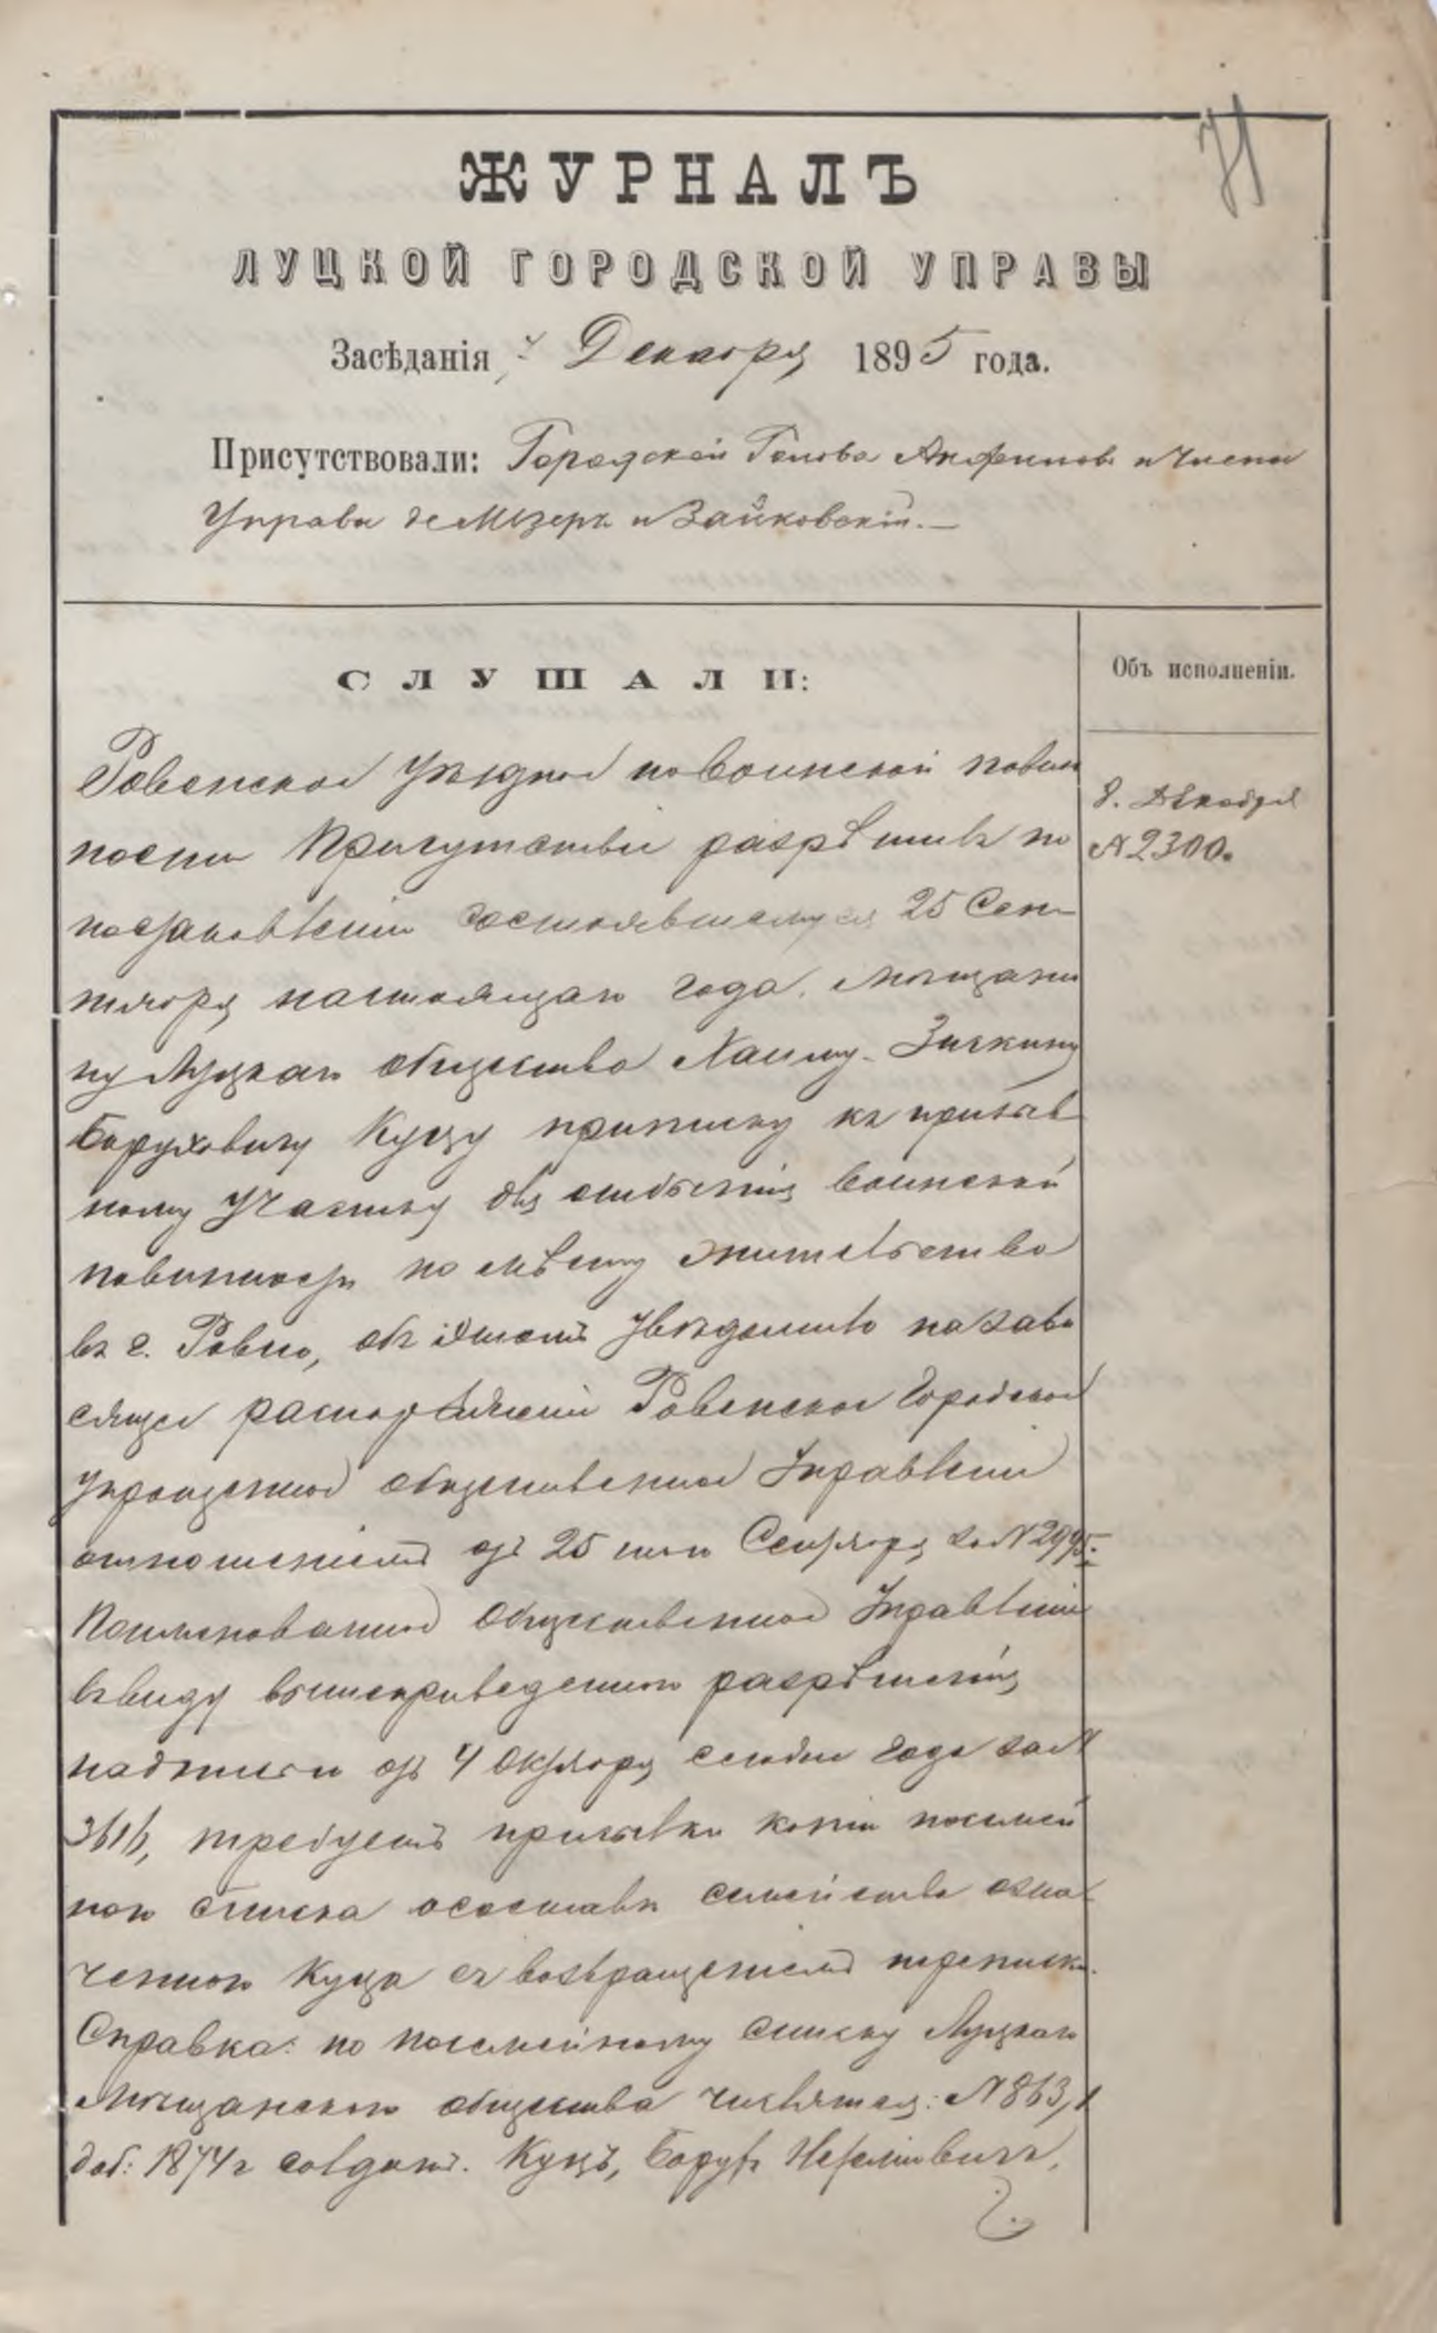 71
ЖУРНАЛЪ
ЛУЦКОЙ ГОРОДСКОЙ УПРАВЫ
Засѣданія Декабря 1895 года.
Присутствовали: Городской Голова и Члены
Управы де Мезеръ и Зайковскій.—
СЛУШАЛИ:
Объ исполненіи.
Ровенское Уѣздное по воинской повин
ности Присутствіе разрѣшивъ по
постановленію состоявшемуся 25 Сен-
тября настоящаго года, мѣщани
ну Луцкаго общества Хаиму-
Боруховичу Куцу приписку къ призыв
ному Участку для отбытія воинской
повинности по мѣсту жительства
въ г. Ровно, объ этомъ увѣдомило на зави
сящее распоряженіе Ровенское Городское
Упрощенное общественное Управленіе
отношеніемъ отъ 25 того Сентября за N 2995.
Поименованное Общественное Управленіе
въ виду вышеприведеннаго разрѣшенія
надписью отъ 4 Октября сего года за N
3616, требуетъ присылки копіи посемей
наго списка о составѣ семейства озна
ченнаго Куца съ возвращеніемъ переписки.
Справка: по посемейному списку Луцкаго
Мѣщанскаго общества числятся: N 863,
доб: 1874 г солдат. Куцъ, Борухъ
8. Декабря
N 2300.